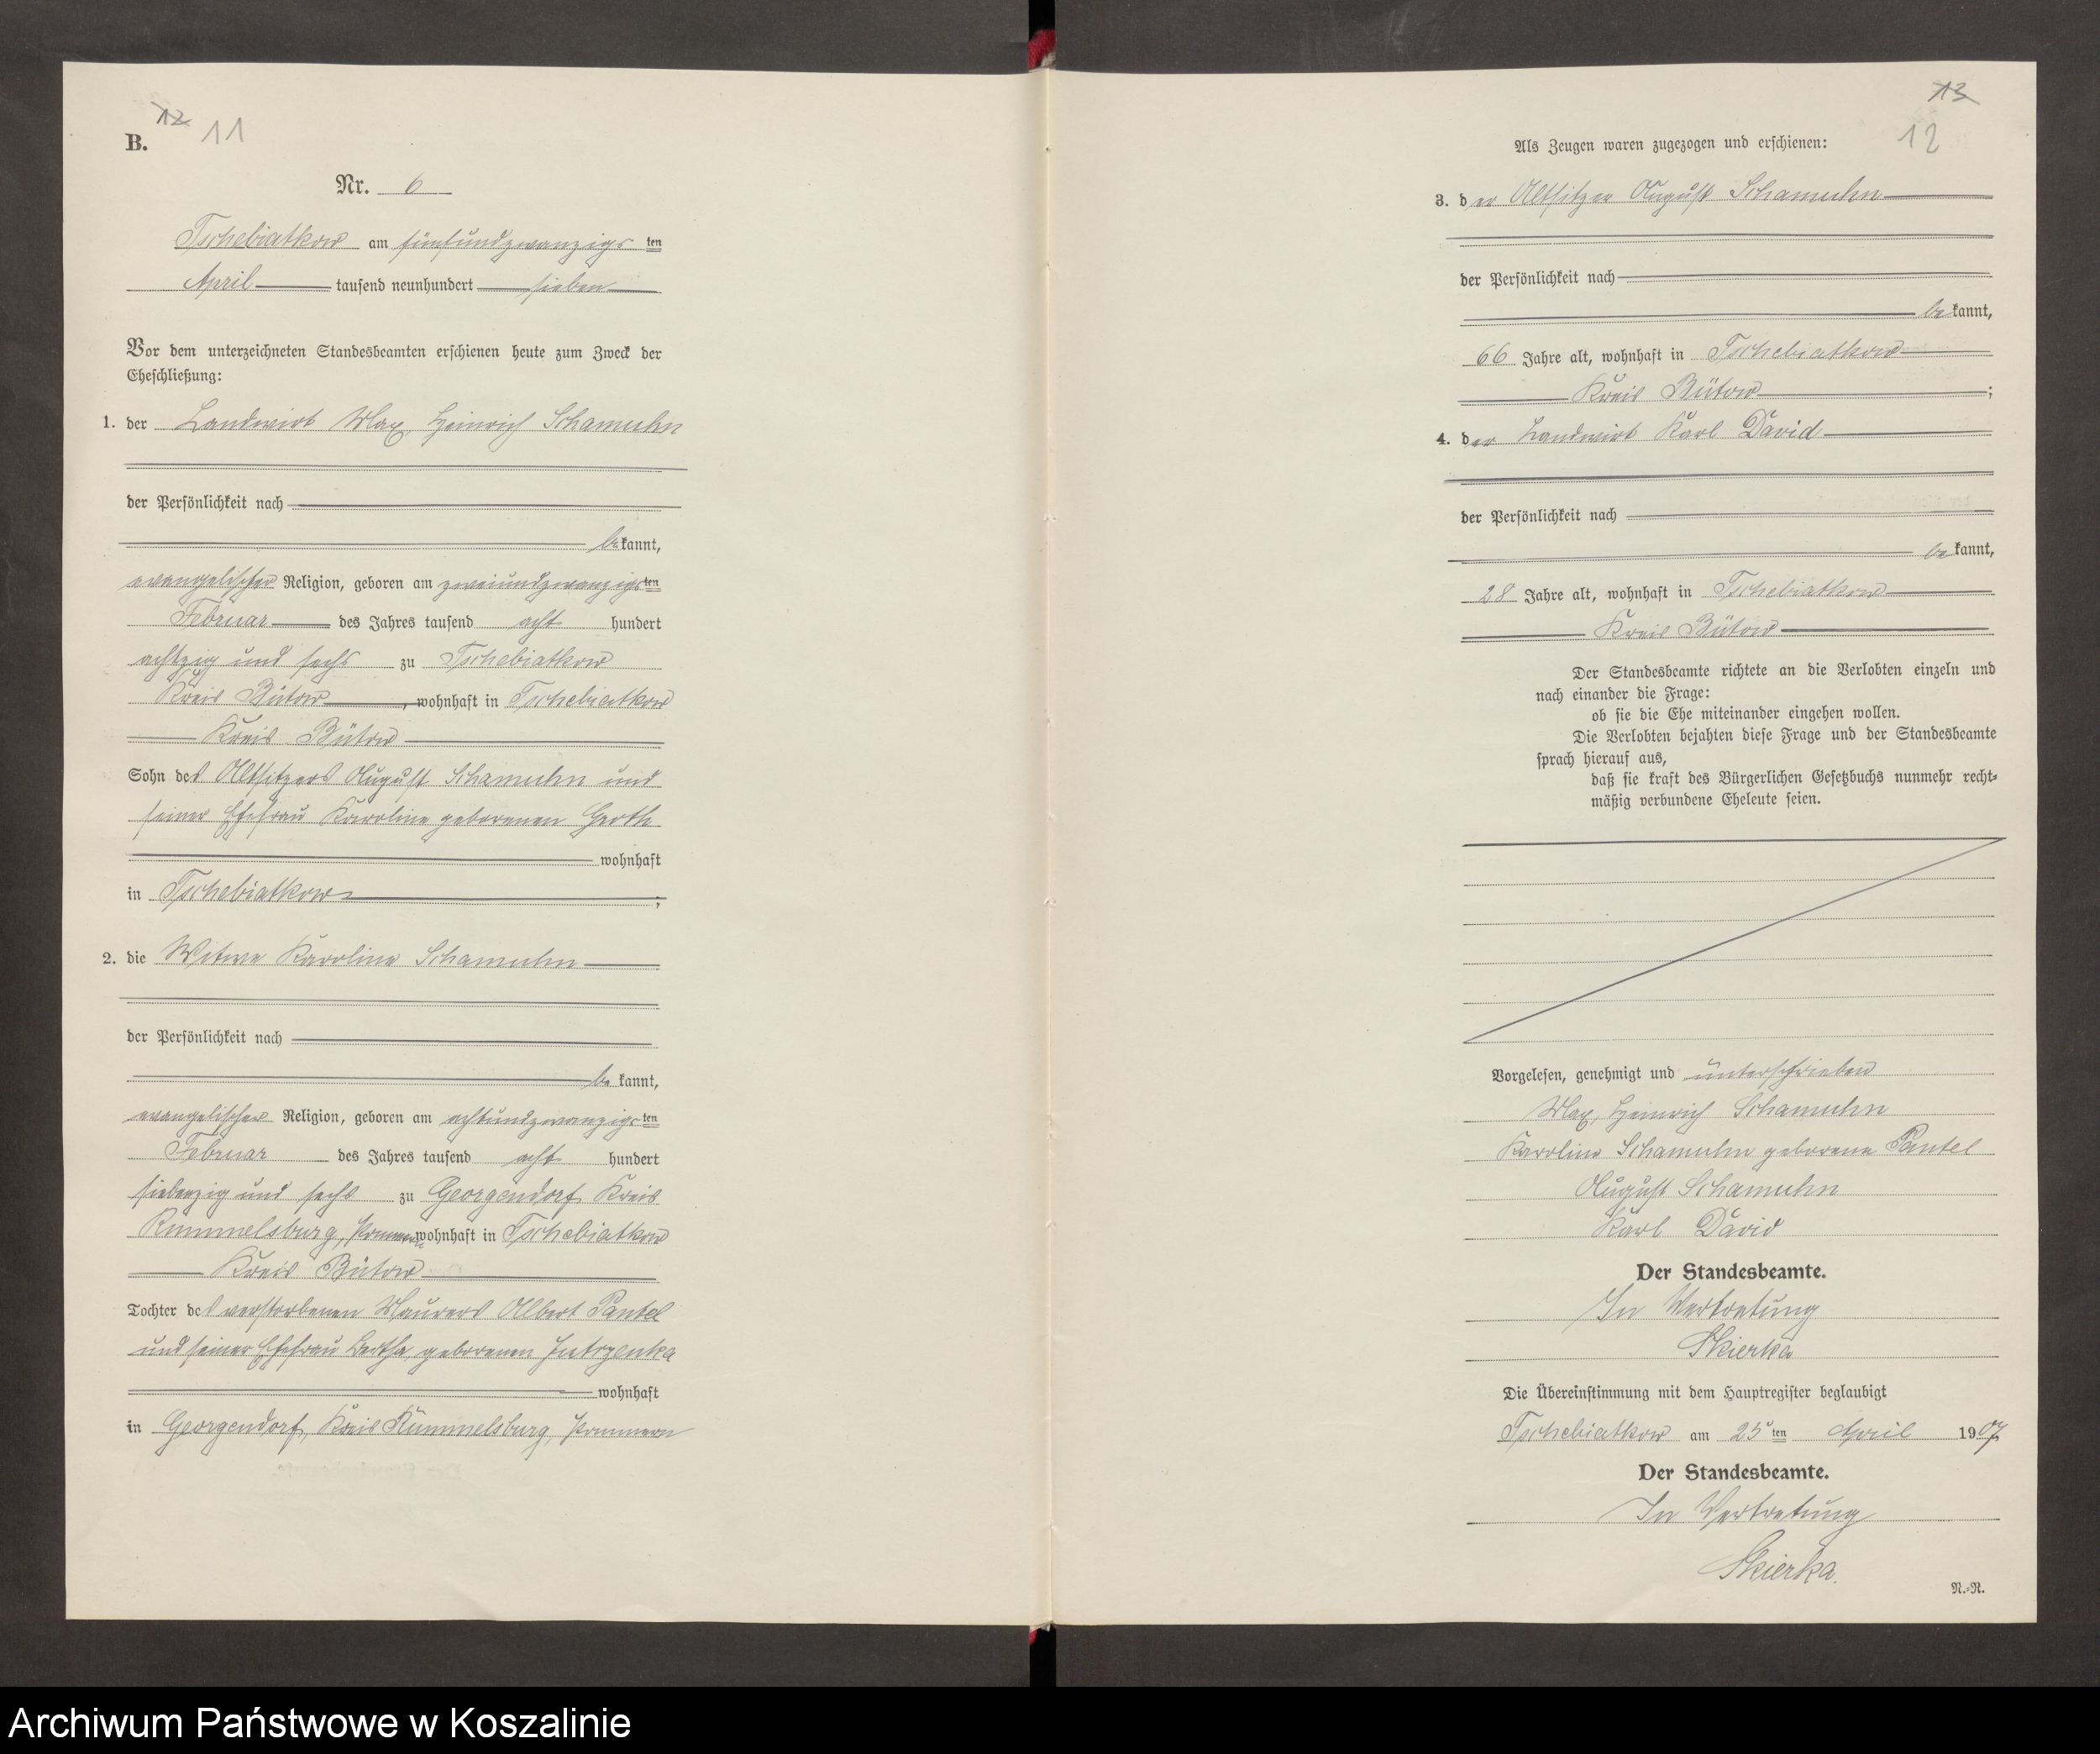 12 11
B.
Nr. 6
Tschebiatkow am fünfundzwanzigsten
April tausend neunhundert sieben
Vor dem unterzeichneten Standesbeamten erschienen heute zum Zweck der
Eheschließung:
1. der Landwirt Max Heinrich Schamuhn
der Persönlichkeit nach
bekannt,
evangelischer Religion, geboren am zweiundzwanzigsten
Februar des Jahres tausend acht hundert
achtzig und sechs zu Tschebiatkow
Kreis Bütow, wohnhaft in Tschebiatkow
Kreis Bütow
Sohn des Altsitzers August Schamuhn und
seiner Ehefrau Karoline geborenen Groth
wohnhaft
in Tschebiatkow;
2. die Witwe Karoline Schamuhn
der Persönlichkeit nach
bekannt,
evangelischer Religion, geboren am achtundzwanzigsten
Februar des Jahres tausend acht hundert
siebenzig und sechs zu Georgendorf Kreis
Rummelsburg, Pommern wohnhaft in Tschebiatkow
Kreis Bütow
Tochter des verstorbenen Maurers Albert Pantel
und seiner Ehefrau Bertha, geborenen Jutrzenka
wohnhaft
in Georgendorf, Kreis Rummelsburg, Pommern
13
12
Als Zeugen waren zugezogen und erschienen:
3. der Altsitzer August Schamuhn
der Persönlichkeit nach
bekannt,
66 Jahre alt, wohnhaft in Tschebiatkow
Kreis Bütow;
4. der Landwirt Karl David
der Persönlichkeit nach
bekannt,
28 Jahre alt, wohnhaft in Tschebiatkow
Kreis Bütow
Der Standesbeamte richtete an die Verlobten einzeln und
nach einander die Frage:
ob sie die Ehe miteinander eingehen wollen.
Die Verlobten bejahten diese Frage und der Standesbeamte
sprach hierauf aus,
daß sie kraft des Bürgerlichen Gesetzbuchs nunmehr recht-
mäßig verbundene Eheleute seien.
Vorgelesen, genehmigt und unterschrieben
Max, Heinrich Schamuhn
Karoline Schamuhn geborene Pantel
August Schamuhn
Karl David
Der Standesbeamte.
In Vertretung
Skierka
Die Übereinstimmung mit dem Hauptregister beglaubigt
Tschebiatkow am 25ten April 1907
Der Standesbeamte.
In Vertretung
Skierka.
N.-R.
Archiwum Państwowe w Koszalinie